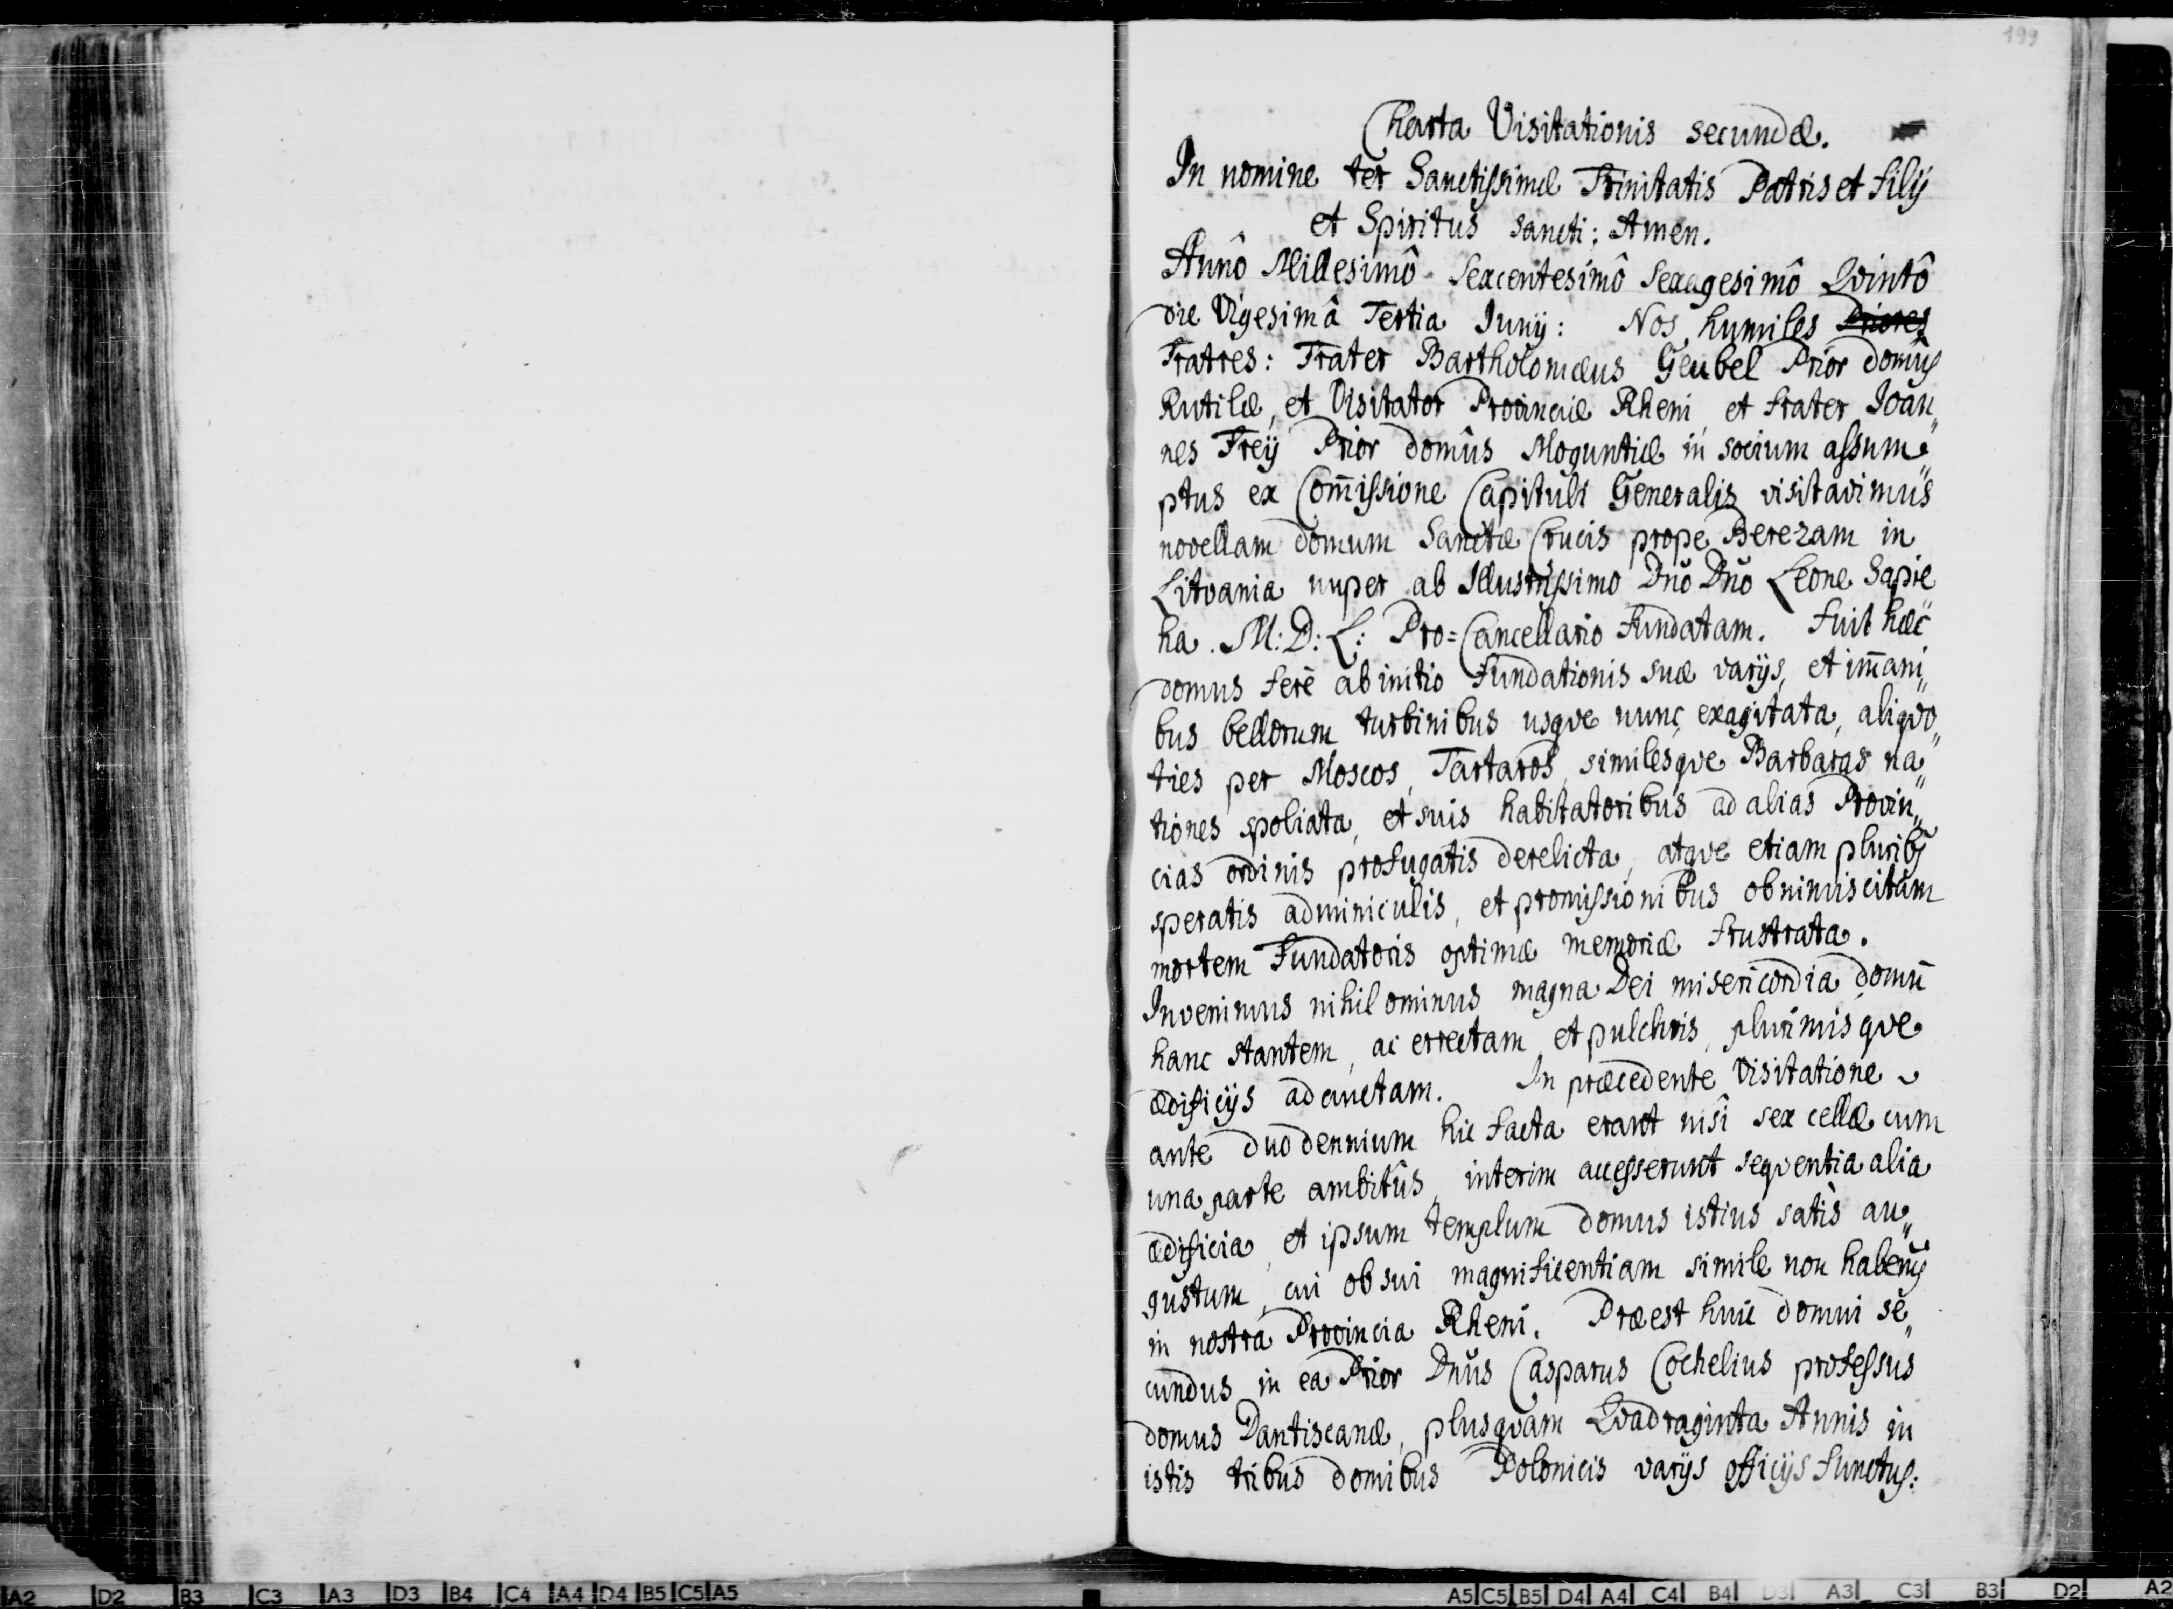 199
Charta Visitationis secundæ.
In nomine ter Sanctissimæ Trinitatis Patris et filij
et Spiritus sancti; Amen.
Annô Millesimô Sexcentesimô Sexagesimô Qvintô
die Vigesimâ Tertia Junij: Nos humiles Priores
Fratres: Frater Bartholomæus Geubel Prior domûs
Rutilæ, et Visitator Provinciæ Rheni, et frater Joan„
nes Freÿ Prior domûs Moguntiæ in socium assum„
ptus ex Com̃issione Capituli Generalis visitavimus
novellam domum Sanctæ Crucis prope Berezam in
Litvania nuper ab Illustrissimo Dño Dño Leone Sapie„
ha. M: D: L: Pro=Cancellario fundatam. Fuit hæc
domus ferè ab initio fundationis suæ varijs, et im̃ani„
bus bellorum turbinibus usqve nunc exagitata, aliqvo„
ties per Moscos, Tartaros, similesqve Barbaras na„
tiones spoliata, et suis habitatoribus ad alias Provin„
cias ordinis profugatis derelicta, atqve etiam pluribꝰ
speratis adminiculis, et promissionibus ob nimis citam
mortem Fundatoris optimæ memoriæ frustrata.
Invenimus nihilominus magna Dei misericordia domũ
hanc stantem, ac errectam et pulchris, plurimisqve
ædificijs adauctam. In præcedente Visitatione
ante duodennium hic facta erant nisi sex cellæ cum
una parte ambitûs, interim accesserunt seqventia alia
ædificia, et ipsum templum domus istius satis au„
gustum, cui ob sui magnificentiam simile non habemꝰ
in nostra Provincia Rheni. Præest huic domui se„
cundus in ea Prior Dnus Casparus Cochelius professus
domus Dantiscanæ, plusqvam Qvadraginta Annis in
istis tribus domibus Polonicis varijs officijs functus:
A2 D2 B3 C3 A3 D3 B4 C4 A4 D4 B5 C5 A5
A5 C5 B5 D4 A4 C4 B4 D3 A3 C3 B3 D2 A2